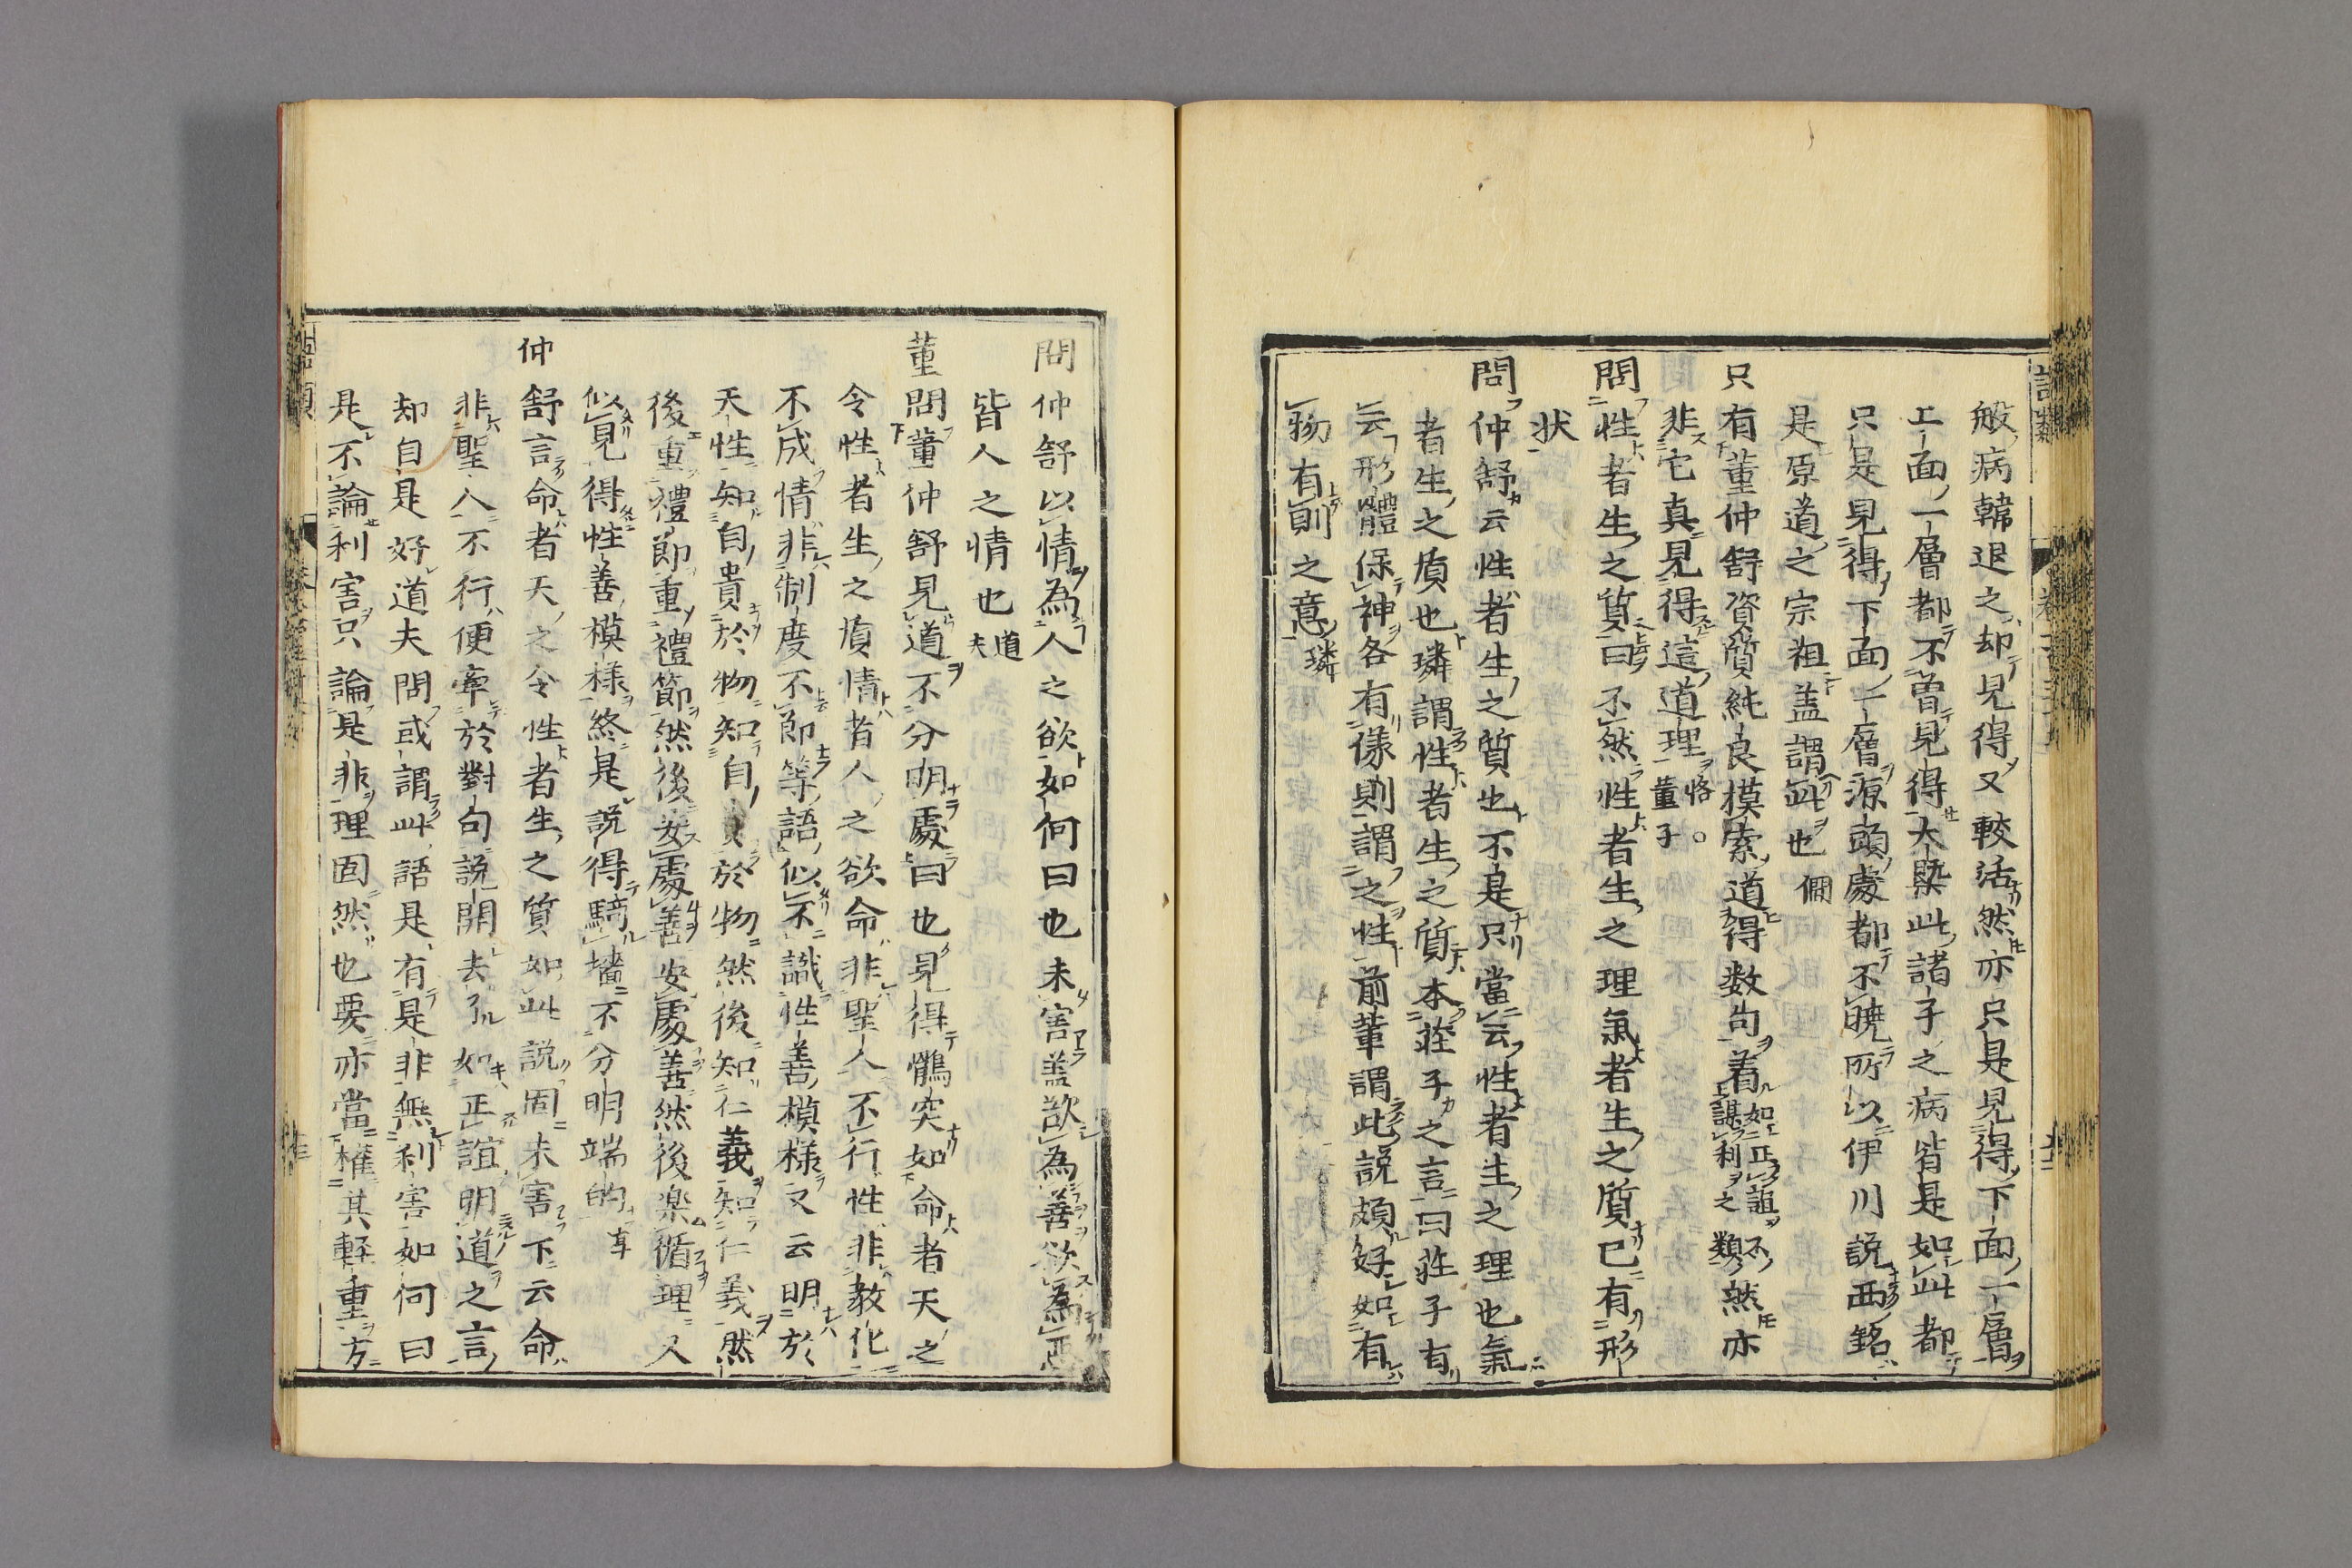 般病韓退之却見得又較活然亦只是見得下面一層
上面一層都不曾見得大槩此諸子之病皆是如此都
只是見得下面一層源頭處都不曉所以伊川說西銘
是原道之宗祖盖謂此也 僩
只有董仲舒資質純良模索道得数句着如正誼不謀利之類然亦
非它真見得這道理 恪○董子
問性者生之質曰不然性者生之理氣者生之質已有形
状
問仲舒云性者生之質也不是只當云性者生之理也氣
者生之質也璘謂性者生之質本莊子之言曰莊子有
云形體保神各有儀則謂之性前輩謂此説頗好如有
物有則之意 璘
問仲舒以情為人之欲如何曰也未害盖欲為善欲為惡
皆人之情也 道夫
董問董仲舒見道不分明處曰也見得鶻突如命者天之
令性者生之質情者人之欲命非聖人不行性非教化
不成情非制度不節等語似不識性善模様又云明於
天性知自貴於物知自於物然後知仁義知仁義然
後重禮節重禮節然後安處善安處善然後楽循理又
似見得性善模様終是説得騎墻不分明端的
仲舒言命者天之令性者生之質如此説固未害下云命
非聖人不行便牽於對句説開去了如正誼明道之言
却自是好道夫問或謂此語是有是非無利害如何曰
是不論利害只論是非理固然也要亦當權其軽重方